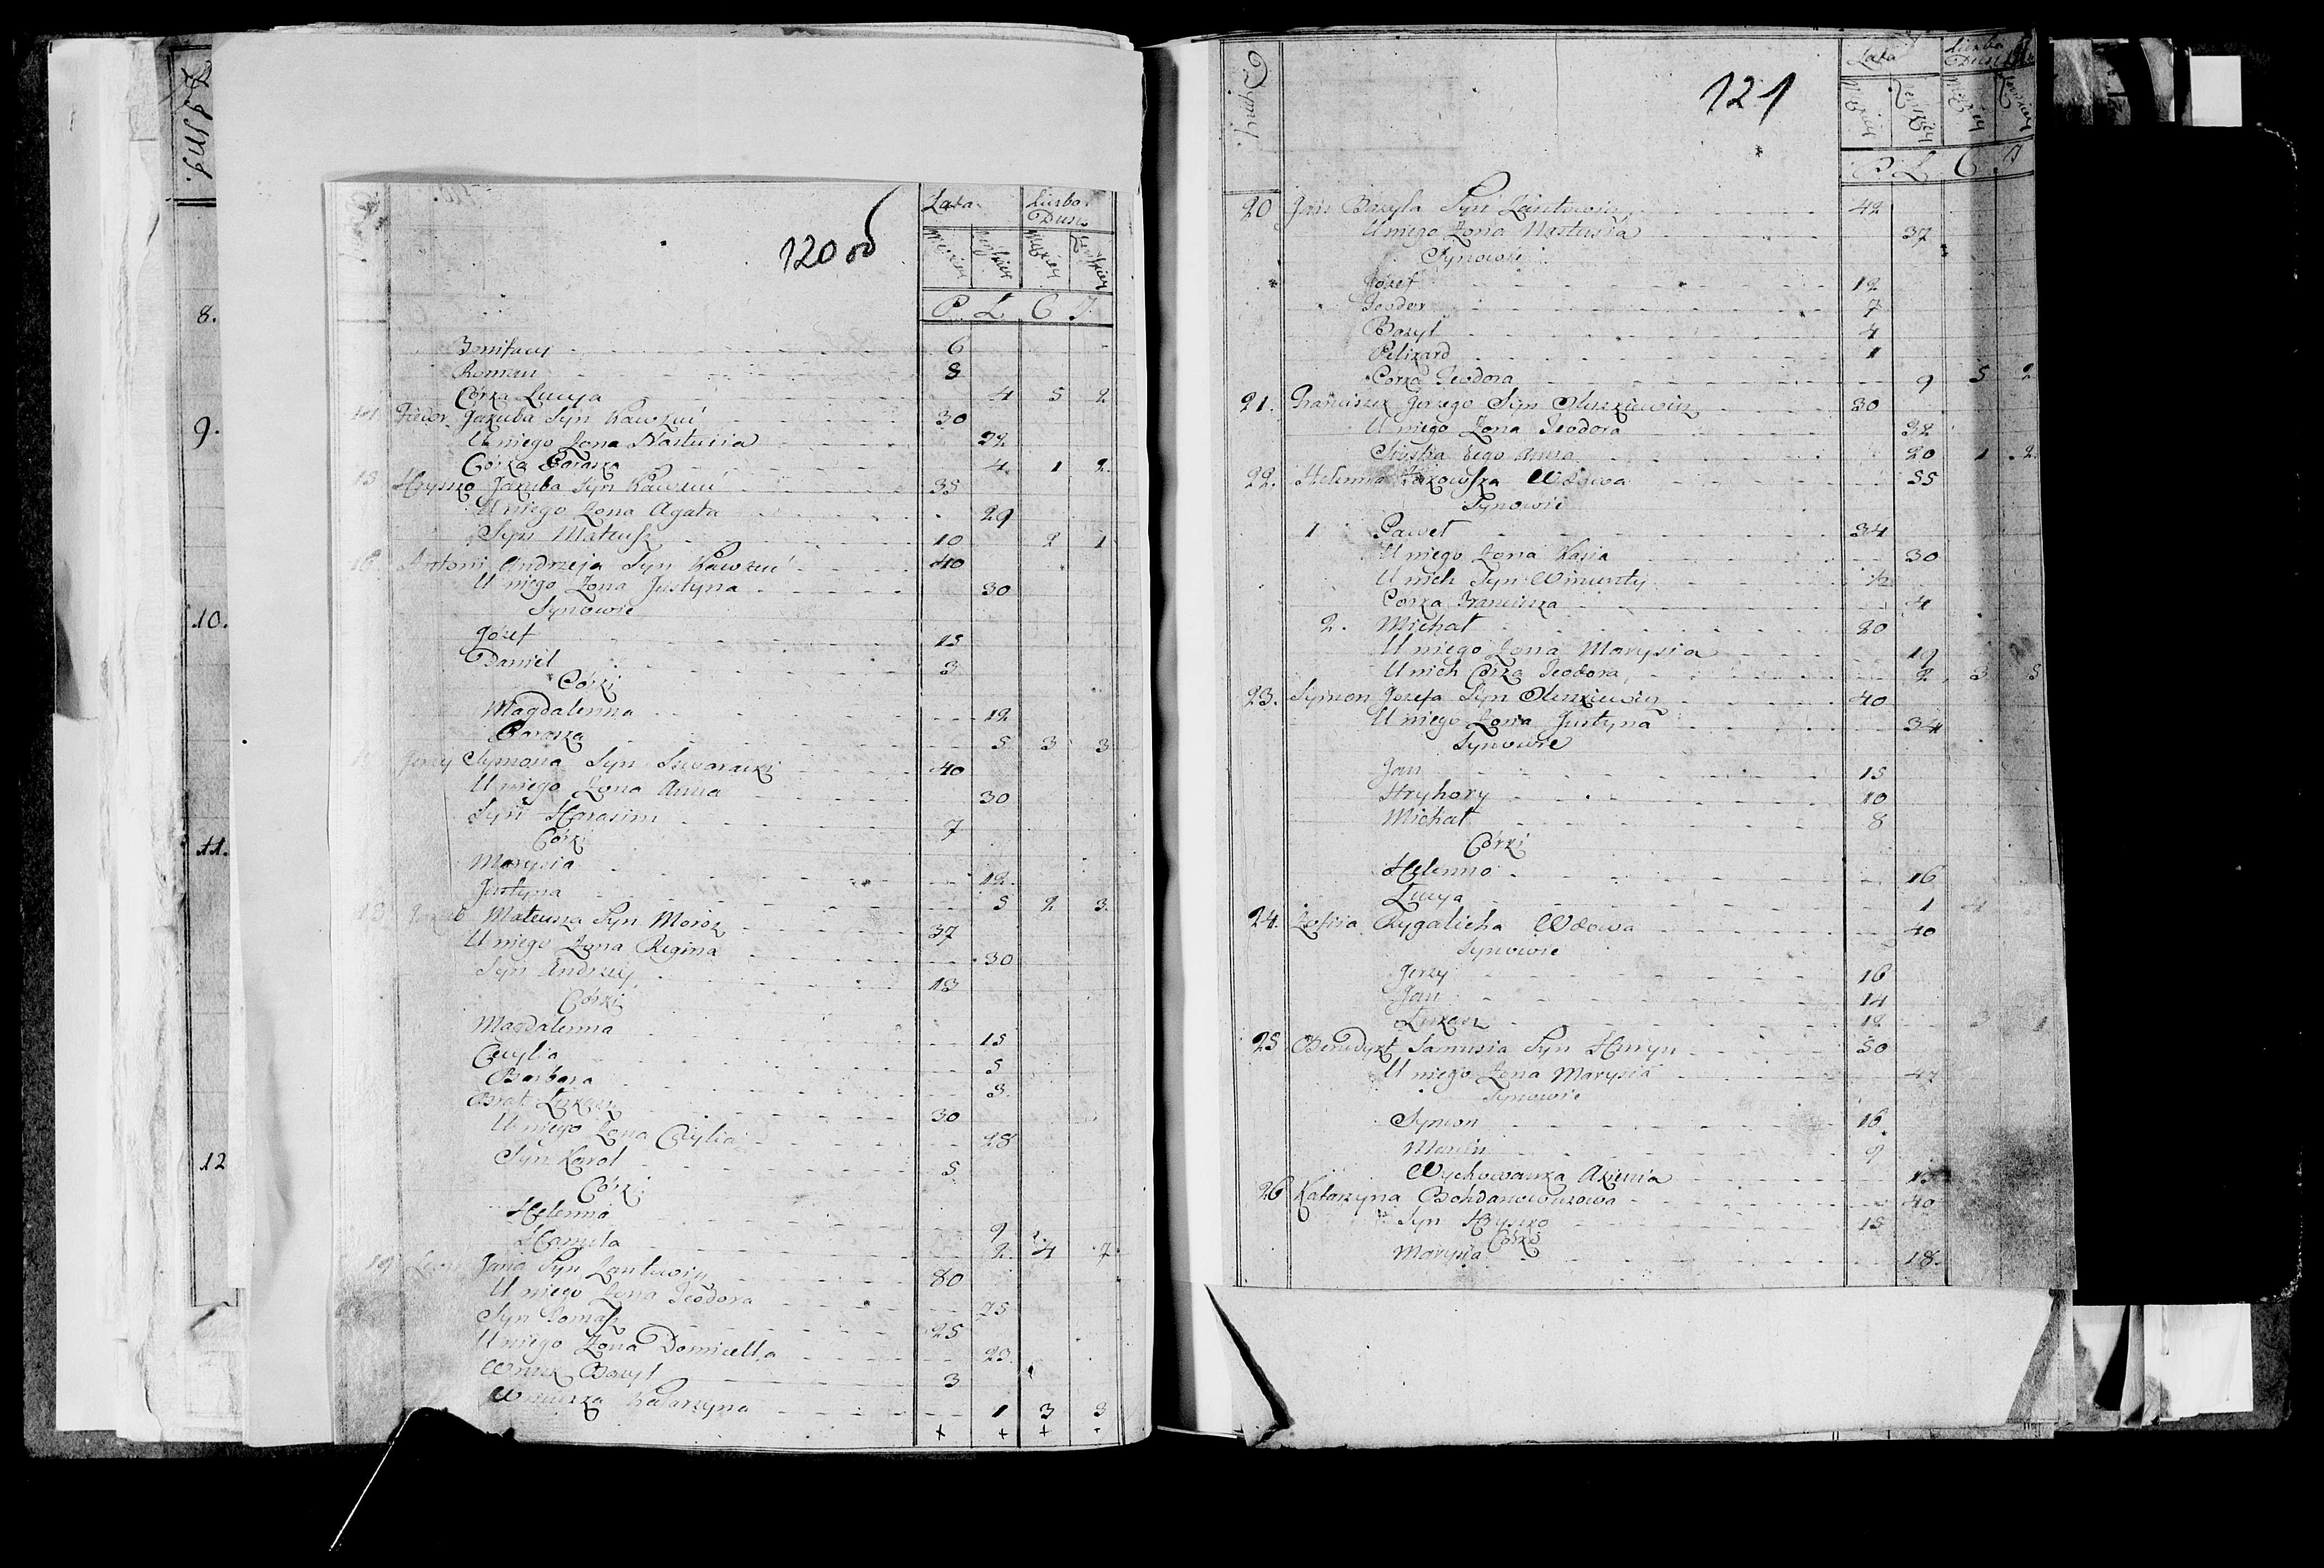 8.
9.
10.
11.
12
120 об
Lata Liczba Dusz
Męzkiey Żeńskiey Męzkiey Żeńskiey
P. L. C. J.
Bonifacy 6
Roman 8
Córka Łucya 4 5 2
Fiedor Jakuba Syn 30
U niego Żona Nastusia 22
Córka Paraska 4 1 2
15 Hryszko Jakuba Syn 35
U niego Żona Agata 29
Syn Mateusz 10 2 1
16. Antoni Andrzeja Syn 40
U niego Żona Justyna 30
Synowie
Józef 15
Daniel 3
Córki
Magdalenna 12
Paraska 5 3 3
Jerzy Symona Syn 40
U niego Żona Anna 30
Syn Harasim 7
Córki
Marysia 12
Justyna 5 2 3
Mateusza Syn Moroz 37
U niego Żona Regina 30
Syn Andrzey 13
Córki
Magdalenna 15
Cecylia 5
Barbara 3
Brat Łukasz 30
U niego Żona Cecylia 28
Syn Karol 5
Córki
Helenna 9
Hanula 2 4 7
19 Jana Syn 80
U niego Żona Teodora 75
Syn Tomasz 25
U niego Żona Domicella 23
Wnuk Bazyl 3
Wnuczka Katarzyna 1 3 3
+ + + +
121
Dymy.
Lata Liczba Dusz
Męzkiey Żeńskiey Męzkiey Żeńskiey
P. L. C. J
20 Jan Bazyla Syn 42
U niego Żona Nastusia 37
Synowie
Józef 12
Teodor 7
Bazyl 4
1
Corka Teodora 9 5 2
21. Franciszek Jerzego Syn Oleszkiewicz 30
U niego Żona Teodora 32
Siostra Jego Anna 20 1 2
22. Helenna Wdowa 55
Synowie
1 Paweł 34
U niego Żona Kasia 30
U nich Syn Wincenty ½
Corka Franciszka 4
2. Michał 20
U niego Żona Marysia 19
U nich Córka Teodora 2 3 5
23. Symon Jozefa Syn Oleszkiewicz 40
U niego Żona Justyna 34
Synowie
Jan 15
Hryhory 10
Michał 8
Córki
Helenna 16
Łucya 1 4
24. Zofiia Rygalicha Wdowa 40
Synowie
Jerzy 16
Jan 14
Łukasz 12 3 1
25 Benedykt Samusia Syn 50
U niego Żona Marysia 47
Synowie
Symon 16
Marcin 9
Wychowanka Axienia 15
26 Katarzyna Bohdanowiczowa 40
Syn Hryszko 15
Córki
Marysia 18.